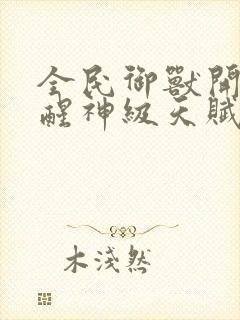 全民御獸開
醒神級天賦
木淺然